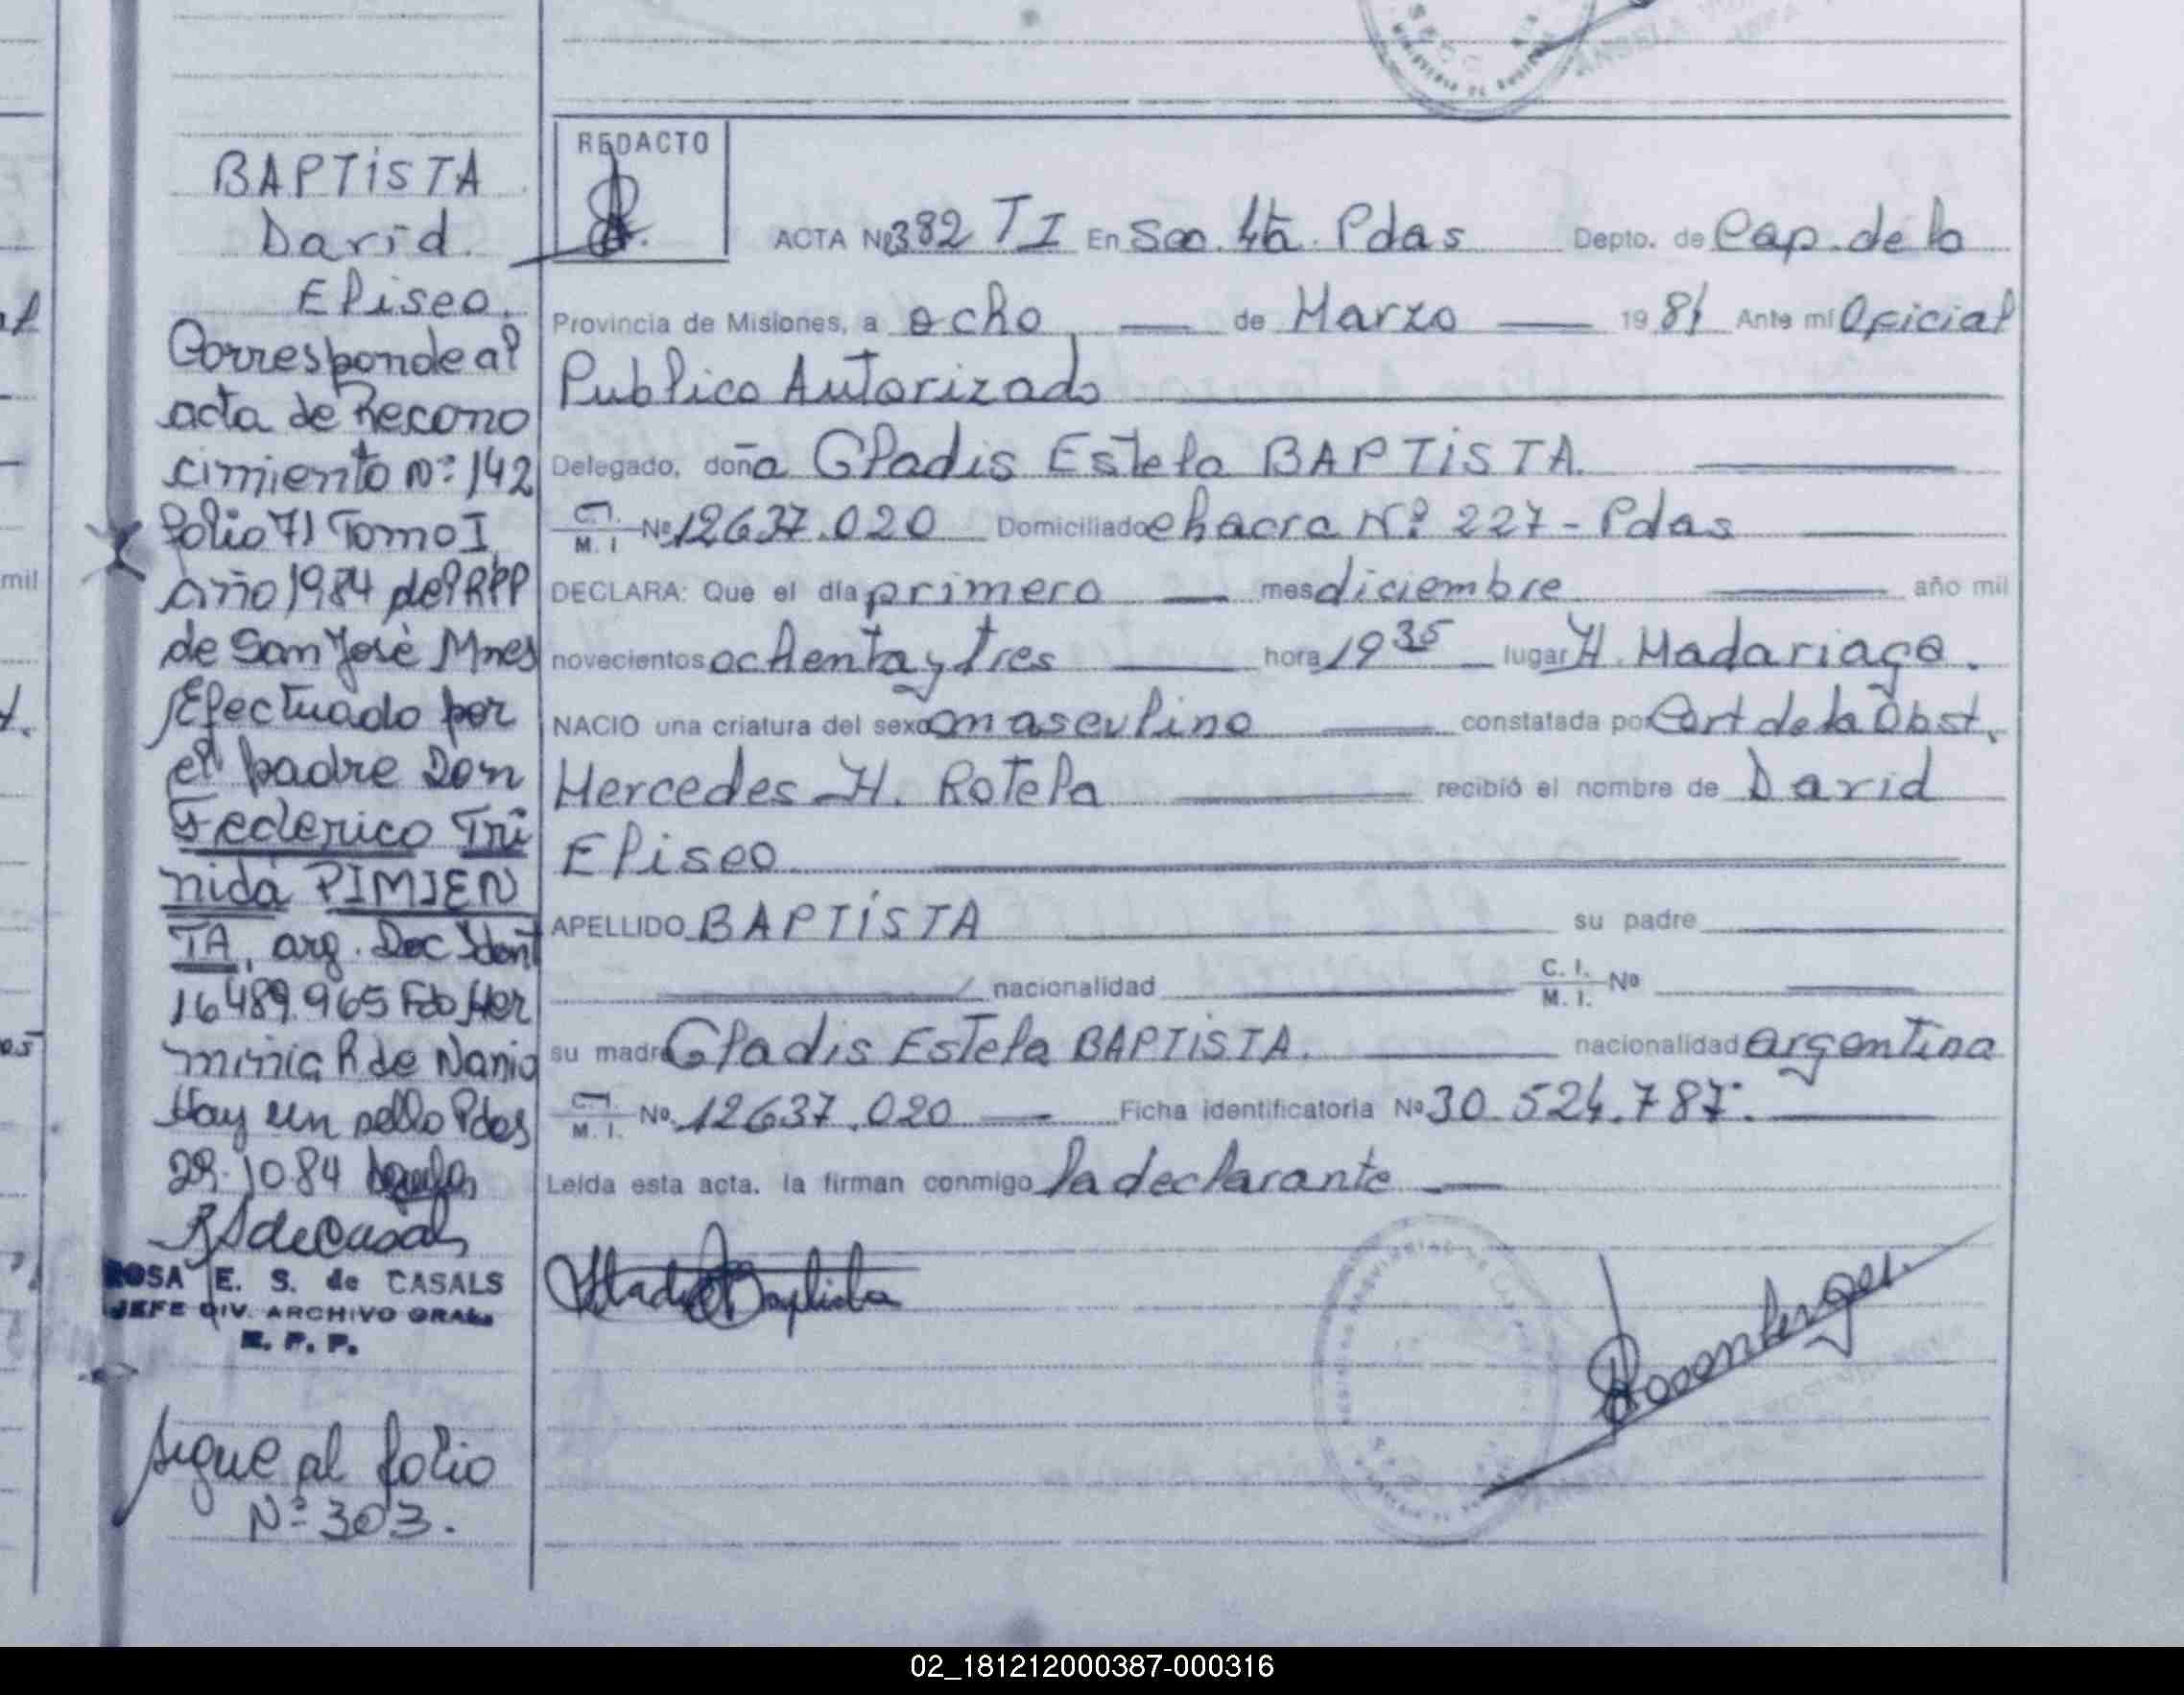 BAPTISTA
David
Eliseo.
Corresponde al
acta de Recono
cimiento Nº: 142
folio 71 Tomo I
año 1984 del RPP
de San José Mnes
Efectuado por
el padre Don
Federico Tri
nida PIMIEN
TA, arg. Doc Ident
16489.965 Fdo Her
minia R de Nanio
Hay un sello Pdas
29.10.84
RSdeCasals
ROSA E. S. de CASALS
JEFE DIV. ARCHIVO GRAL.
R. P. P.
Sigue al folio
Nº 303.
REDACTO
ACTA Nº 382 TI En Sec. 4ta. Pdas Depto. de Cap. de la
Provincia de Misiones, a ocho de Marzo 1984 Ante mi Oficial
Publico Autorizado
Delegado, doña Gladis Estela BAPTISTA.
C.I. M. I Nº 12637.020 Domiciliado chacra Nº 227 - Pdas
DECLARA: Que el día primero mes diciembre año mil
novecientos ochenta y tres hora 19 35 lugar H. Madariaga.
NACIO una criatura del sexo masculino constatada por Cert de la Obst.
Hercedes H. Rotela recibió el nombre de David
Eliseo
APELLIDO BAPTISTA su padre
nacionalidad C. I. M. I. Nº
su madre Gladis Estela BAPTISTA. nacionalidad argentina
C.I. M. I. Nº 12637.020 Ficha identificatoria Nº 30.524.787.
Leída esta acta. la firman conmigo la declarante
Gladis Baptista
Rosenberger.
mil
02_181212000387-000316